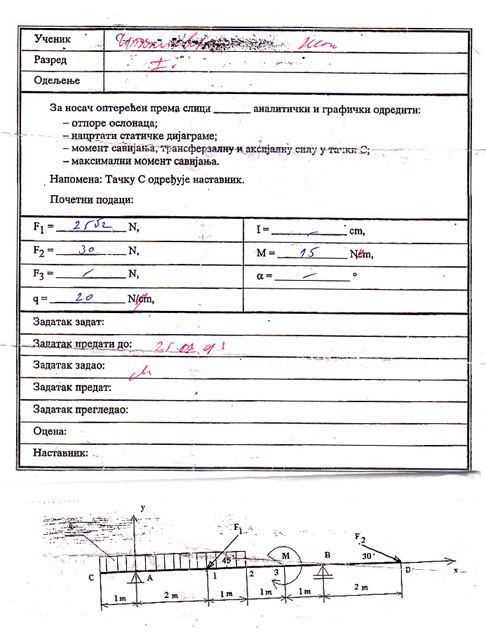 Ученик
Разред I.
Одељење
За носач оптерећен према слици ______ аналитички и графички одредити:
– отпоре ослонаца;
– нацртати статичке дијаграме;
– момент савијања, трансферзалну и аксијалну силу у тачки C;
– максимални момент савијања.
Напомена: Тачку C одређује наставник.
Почетни подаци:
F1 = N, l = – cm,
F2 = 30 N, M = 15 Nm,
F3 = / N, α = – °
q = 20 N/m,
Задатак задат:
Задатак предати до:
Задатак задао:
Задатак предат:
Задатак прегледао:
Оцена:
Наставник:
y
F1 F2
45° M B 30°
C A 1 2 3 D x
1m 2m 1m 1m 1m 2m